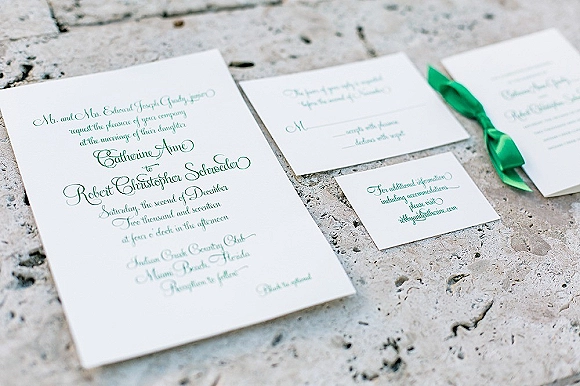 Mr. and Mrs. Edward Joseph Grady, junior
request the pleasure of your company
at the marriage of their daughter
Catherine Anne
to
Robert Christopher Schroeder
Saturday, the second of December
Two thousand and seventeen
at four o'clock in the afternoon
Indian Creek Country Club
Miami Beach, Florida
Reception to follow
Black tie optional
The favor of your reply is requested
before the second of November
M
accepts with pleasure
declines with regret
For additional information
including accommodations
please visit
Catherine Anne Grady
Robert Christopher